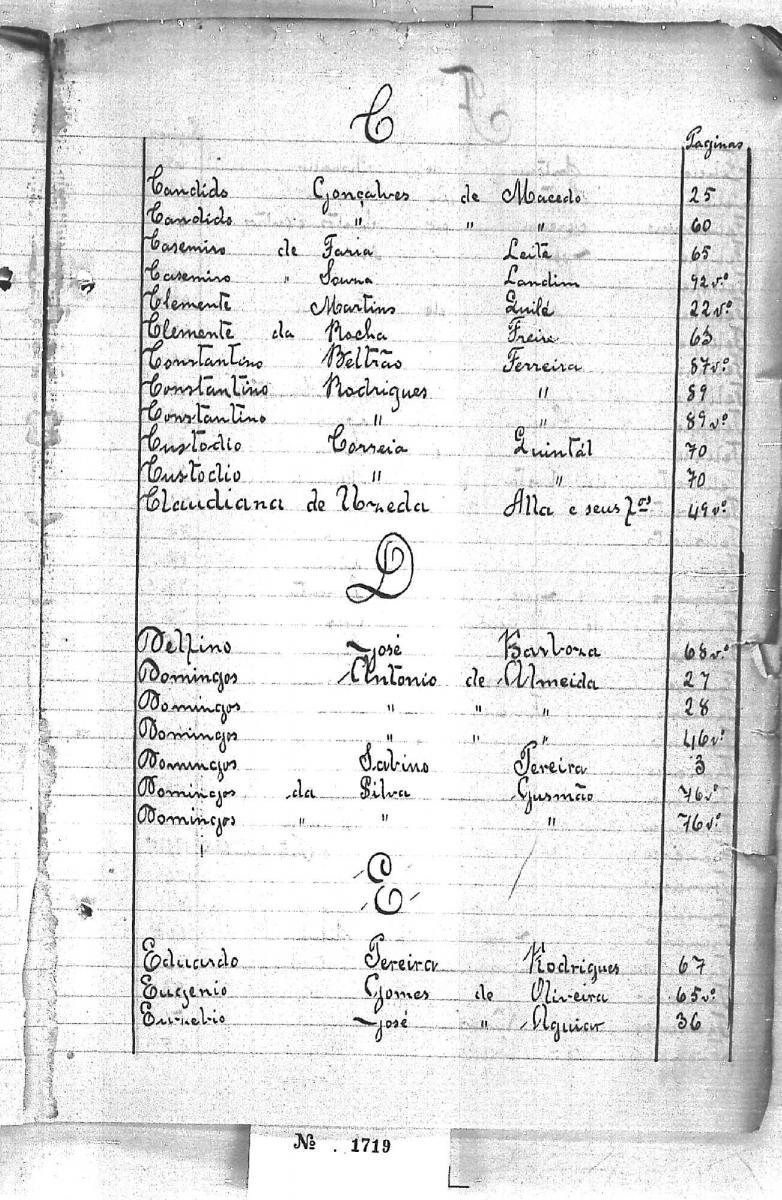 C
Paginas
Candido Gonçalves de Macedo 25
Candido " " " 60
Casemiro de Faria Leite 65
Casemiro " Souza Landim 92vº
Clemente Martins 22vº
Clemente da Rocha Freire 63
Constantino Beltrão Ferreira 87vº
Constantino Rodrigues " 89
Constantino " " 89vº
Custodio Correia Quintál 70
Custodio " " 70
Claudiana de Uzeda e seus fos 49vº
D
Delfino José Barboza 68vº
Domingos Antonio de Almeida 27
Domingos " " " 28
Domingos " " " 46vº
Domingos Sabino Pereira 3
Domingos da Silva Gusmão 76vº
Domingos " " " 76vº
E
Eduardo Pereira Rodrigues 67
Eugenio Gomes de Oliveira 65vº
Euzebio José " Aguiar 36
№ . 1719